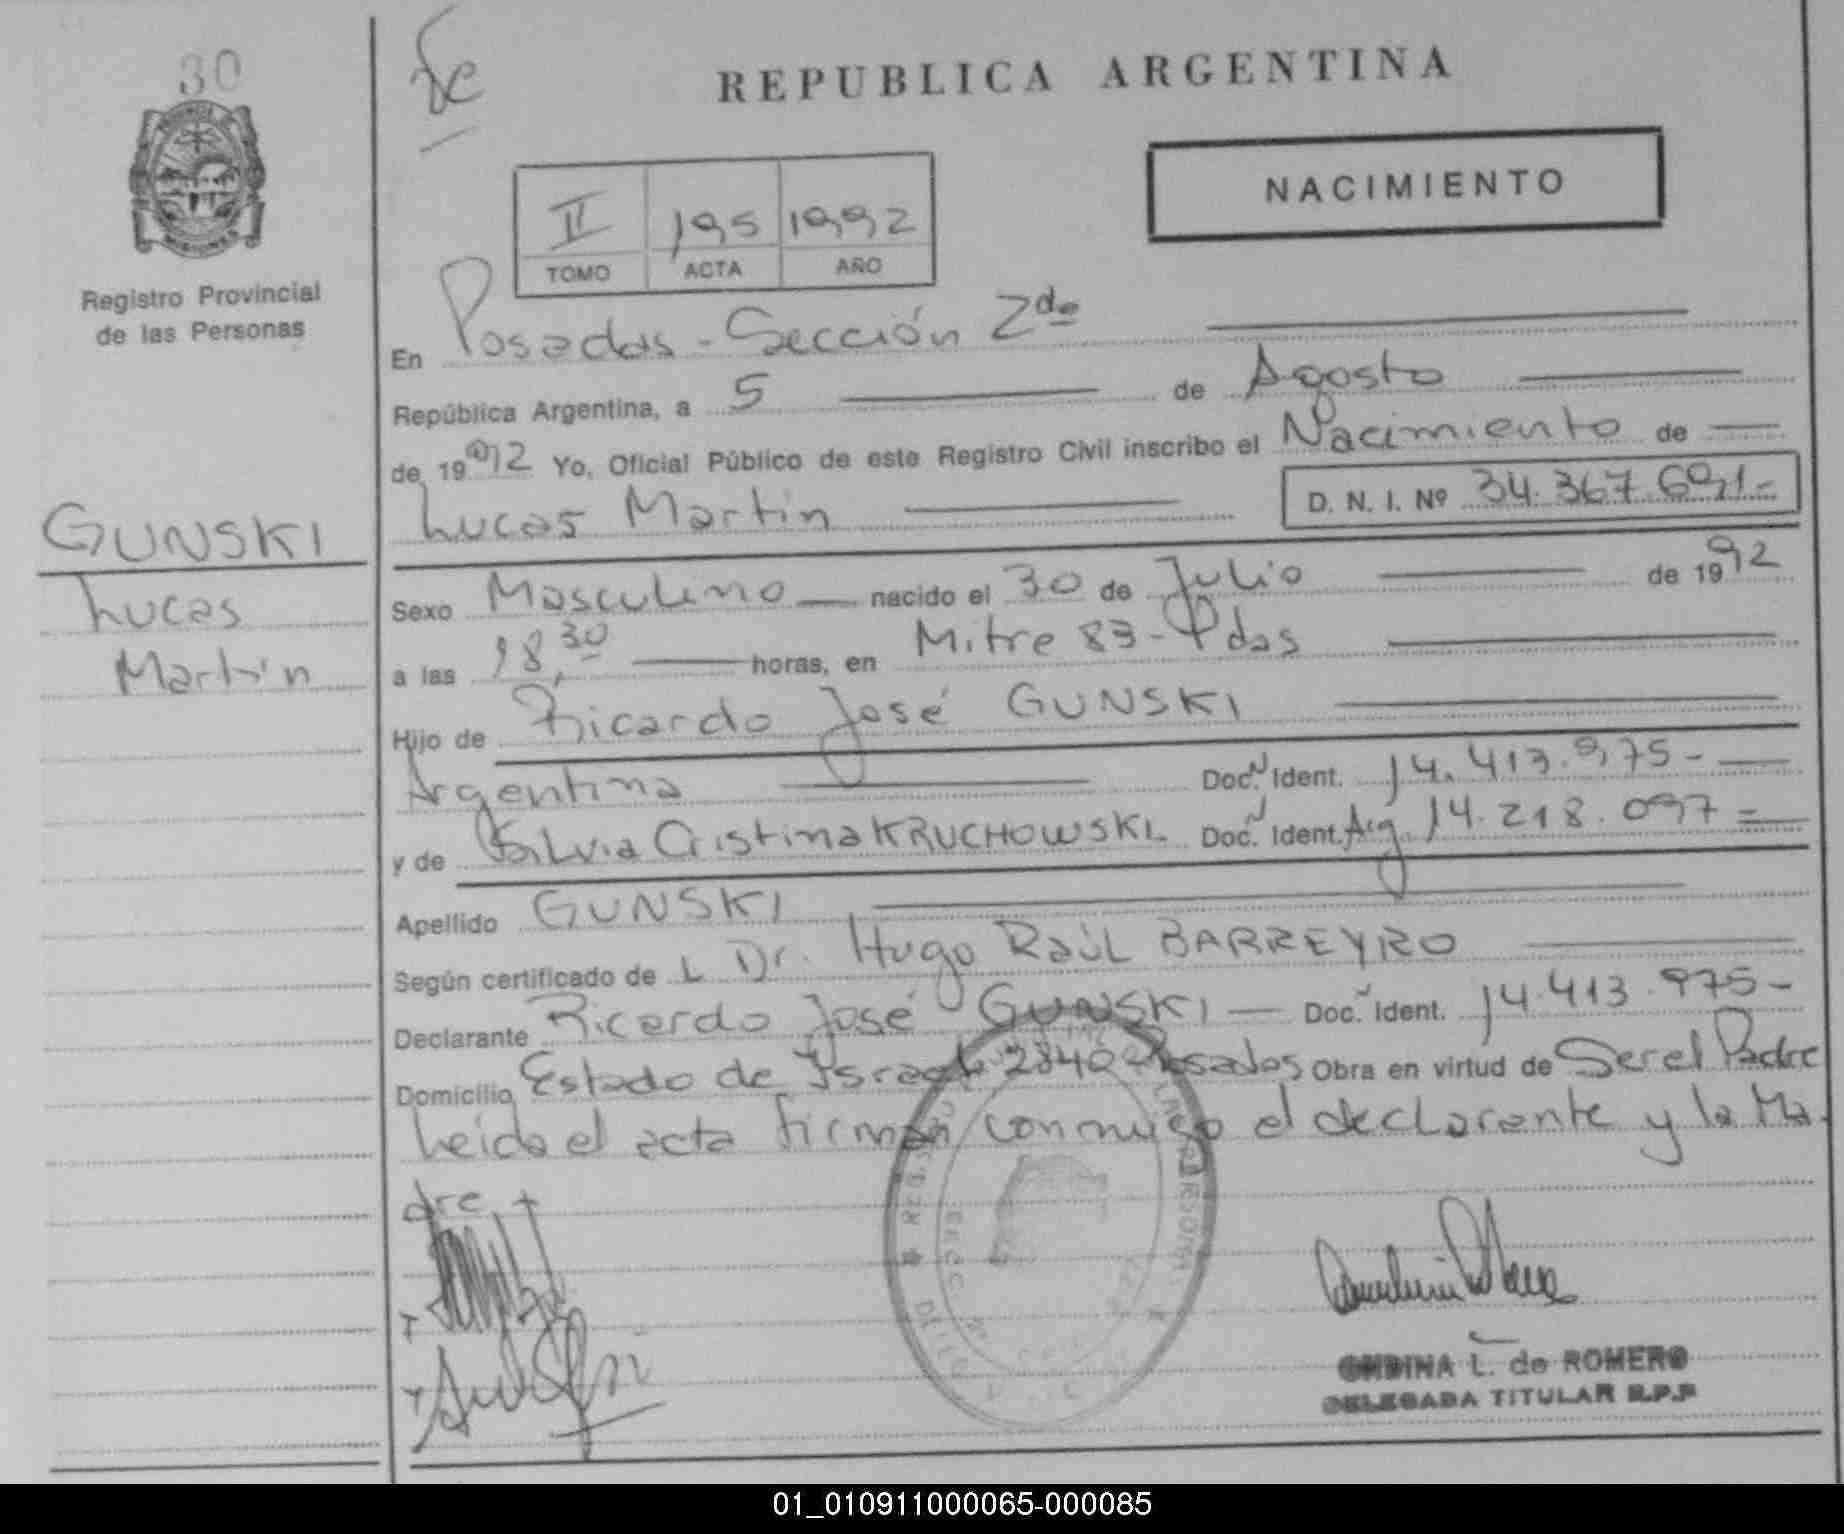 30
Registro Provincial
de las Personas
GUNSKI
Lucas
Martín
REPUBLICA ARGENTINA
NACIMIENTO
II 195 1992
TOMO ACTA AÑO
En Posadas - Sección 2da
República Argentina, a 5 de Agosto
de 1992 Yo, Oficial Público de este Registro Civil inscribo el Nacimiento de
Lucas Martín D. N. I. Nº 34.367.691-
Sexo Masculino nacido el 30 de Julio de 1992
a las 18,30 horas, en Mitre 83 - Pdas
Hijo de Ricardo José GUNSKI
Argentina Doc. Ident. 14.413.975-
y de Silvia Cristina KRUCHOWSKI Doc. Ident. Arg 14.218.097
Apellido GUNSKI
Según certificado de L Dr. Hugo Raúl BARREYRO
Declarante Ricardo José GUNSKI Doc. Ident. 14.413.975-
Domicilio Estado de Israel 2840 Posadas Obra en virtud de Ser el Padre
Leida el acta firman conmigo el declarante y la Ma-
dre
ONDINA L. de ROMERO
DELEGADA TITULAR R.P.P
01_010911000065-000085